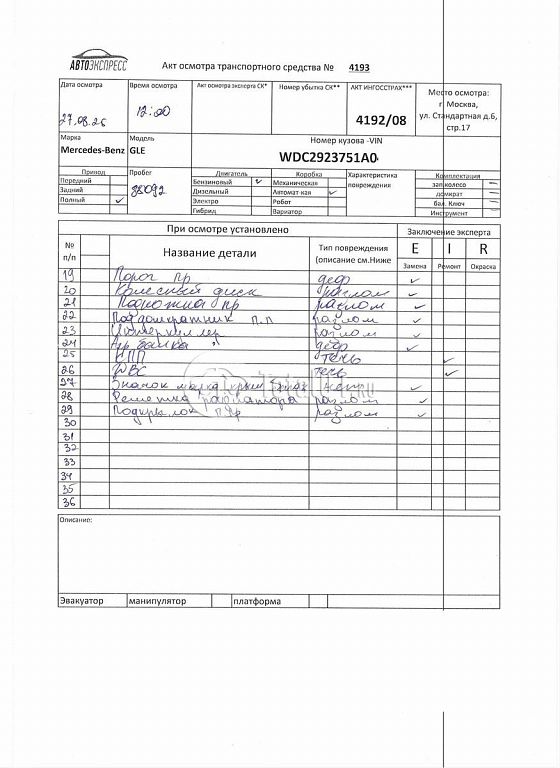 АВТОЭКСПРЕСС
Акт осмотра транспортного средства № 4193
Дата осмотра Время осмотра Акт осмотра эксперта СК* Номер убытка СК** АКТ ИНГОССТРАХ*** Место осмотра:
г. Москва,
ул. Стандартная д.6,
стр.17
12:00
4192/08
Марка Модель Номер кузова -VIN
Mercedes-Benz GLE WDC2923751A0
Привод Пробег Двигатель Коробка Характеристика повреждения Комплектация
Передний Бензиновый ✓ Механическая зап колесо
Задний Дизельный Автомат кая ✓ домкрат
Полный ✓ 38092 Электро Робот бал. Ключ
Гибрид Вариатор Инструмент
При осмотре установлено Заключение эксперта
№ п/п Название детали Тип повреждения (описание см.Ниже E I R
Замена Ремонт Окраска
19 Порог пр деф ✓
20 Колесный диск разлом ✓
21 Подножка пр разлом ✓
22 Поддомкратник п.п разлом ✓
23 Интеркуллер разлом ✓
24 балка " деф ✓
25 КПП течь ✓
26 ДВС течь ✓
27 Значок ✓
28 Решетка радиатора разлом ✓
29 Подкрылок разлом ✓
30
31
32
33
34
35
36
Описание:
Эвакуатор манипулятор платформа